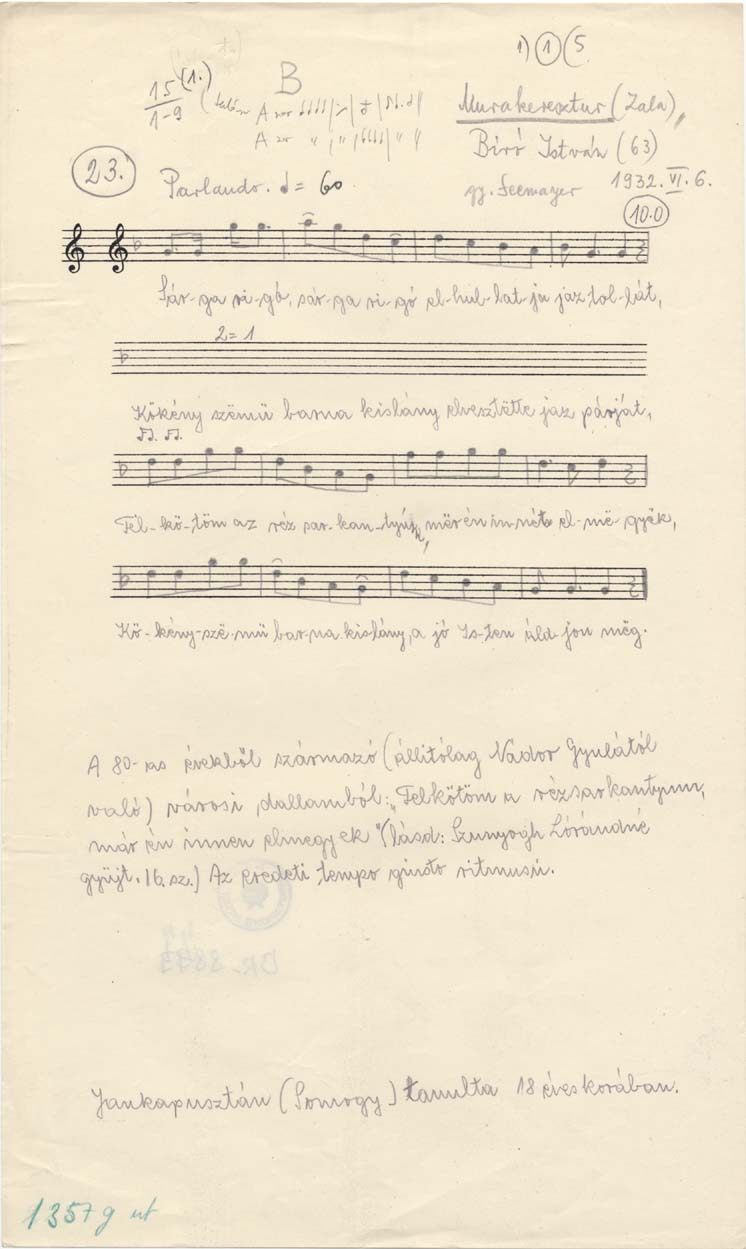 1) 1 (5
15 (1.) B
1-9
Murakeresztur (Zala)
Biró István (63)
23. Parlando. = 60
gy. Seemayer 1932. VI. 6.
10.0
Sár-ga ri-gó, sár-ga ri-gó el-hul-lat-ja jaz tol-lát,
2 = 1
Kökény szëmü barna kislány elvesztëtte jaz párját,
Fël-kö-töm az réz sar-kan-tyúk, mër én in-nét el-më-gyëk,
Kö-kény-szë-mü bar-na kislány, a jó Is-ten áld-jon mëg.
A 80-as évekből származó (állitólag Nádor Gyulától
való) városi dallamból: „Felkötöm a rézsarkantyum,
már én innen elmegyek" (lásd: Szunyogh Lórándné
gyüjt. 16. sz.) Az eredeti tempo giusto ritmusú.
DR. 8873
Jankapusztán (Somogy) tanulta 18 éves korában.
1357 g